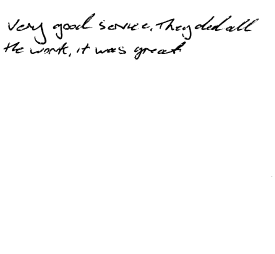 Very good service. They did all
the work, it was great